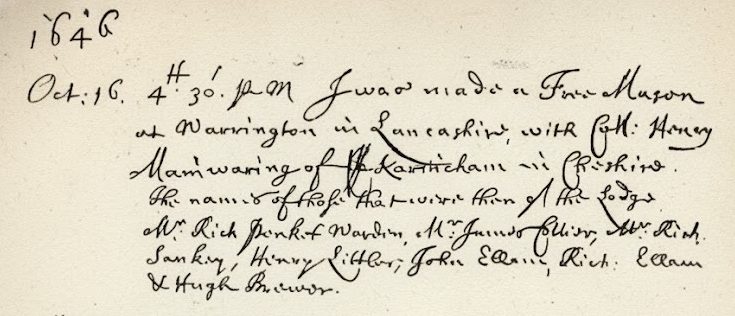 1646
Oct: 16. 4H 30' p m I was made a Free Mason
at Warrington in Lancashire, with Coll: Henry
Mainwaring of Karincham in Cheshire.
the names of those that were then of the Lodge
Mr: Rich Penket Warden, Mr: James Collier, Mr: Rich:
Sankey, Henry Littler, John Ellam, Rich: Ellam
& Hugh Brewer.